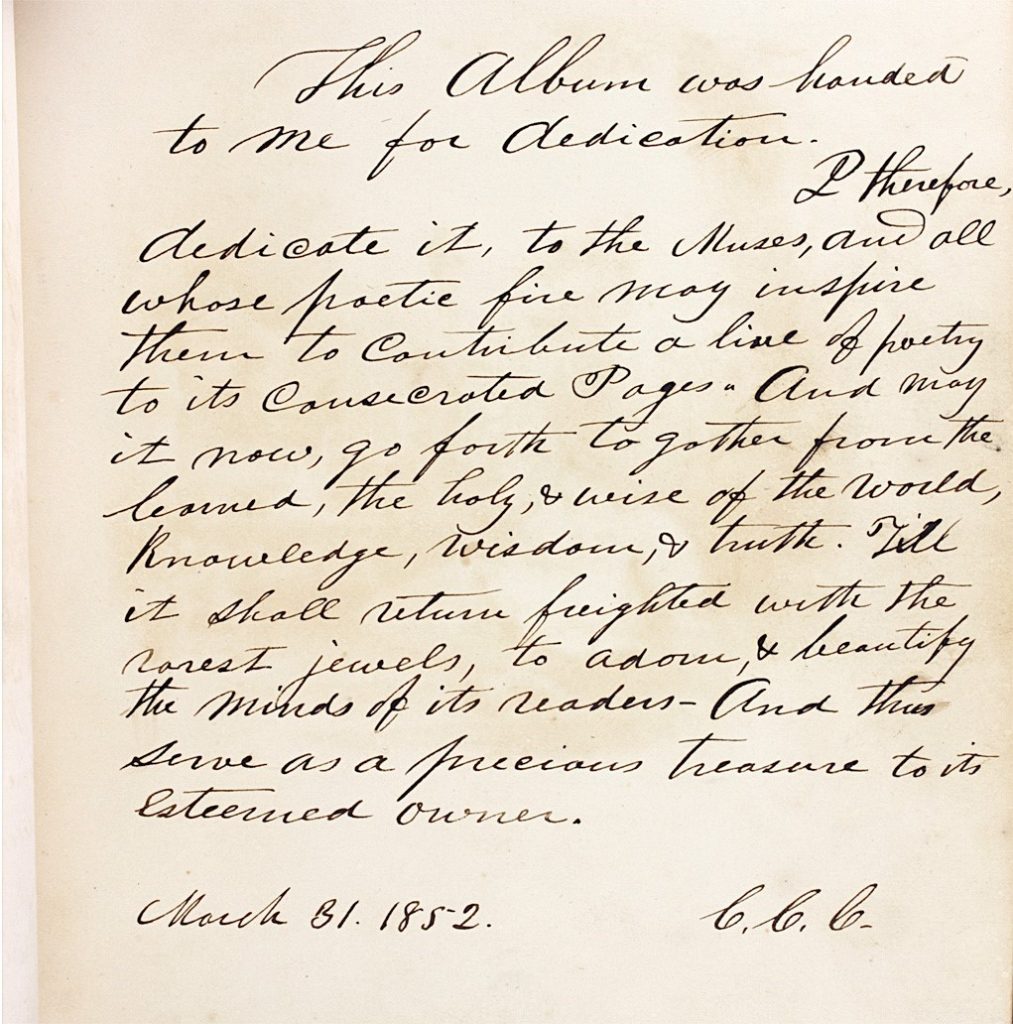 This Album was handed
to me for dedication.
I therefore,
dedicate it, to the Muses, and all
whose poetic fire may inspire
them to contribute a line of poetry
to its consecrated Pages. And may
it now, go forth to gather from the
learned, the holy, & wise of the world,
Knowledge, wisdom, & truth. Till
it shall return freighted with the
rarest jewels, to adorn, & beautify
the minds of its readers- And thus
serve as a precious treasure to its
esteemed owner.
March 31. 1852.
C. C. C.